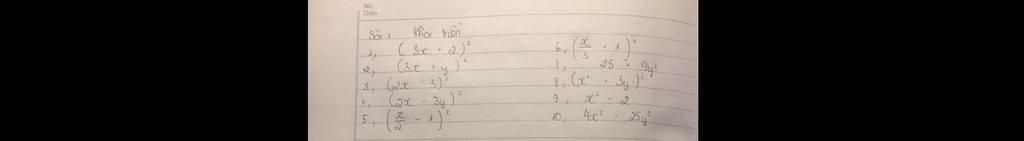 No
Date
Bài 1: Khai triển
1, (3x + 2)²
2, (3x + y)²
3, (2x - 5)²
4, (2x - 3y)²
5, (x/2 - 1)²
6, (x/3 + 1)²
7, 25 - 9y²
8, (x² + 3y)²
9, x² - 2
10, 4x² - 25y²